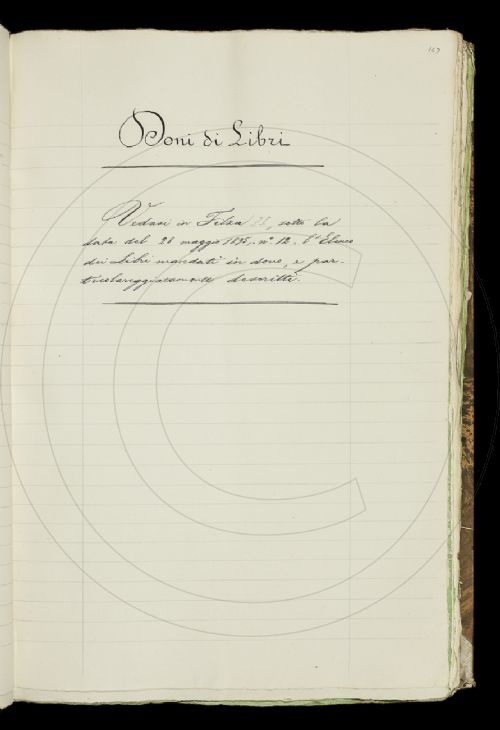 167
Doni di Libri
Vedasi in Filza 28, sotto la
data del 28 maggio 1895, nº 12, l'Elenco
dei Libri mandati in dono, e par-
ticolareggiatamente descritti.